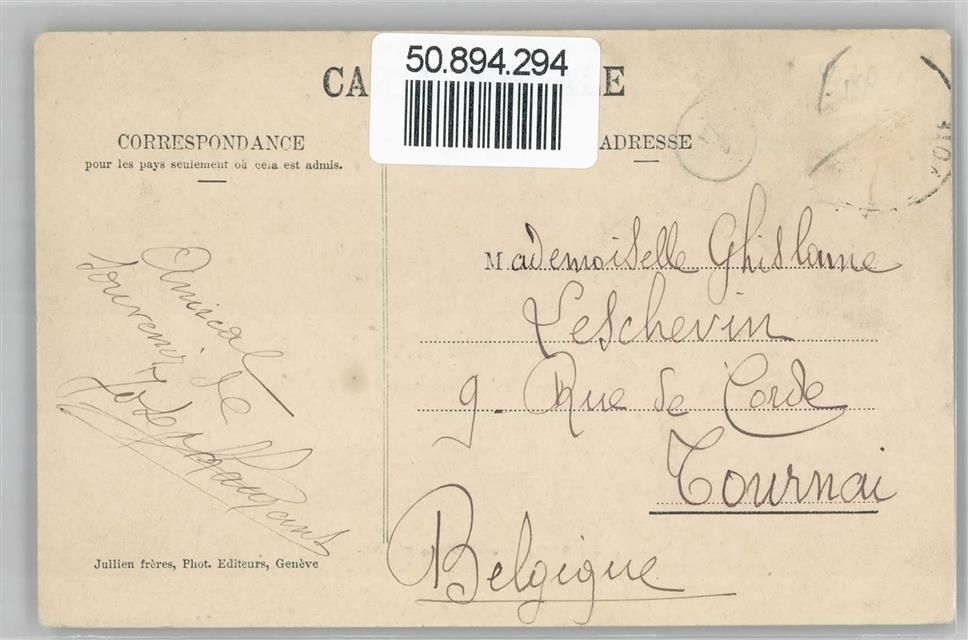 50.894.294
CORRESPONDANCE
pour les pays seulement où cela est admis.
ADRESSE
Mademoiselle Ghislaine
Leschevin
9. Rue de Corde
Tournai
Belgique
Amical
souvenir de
Jullien frères, Phot. Editeurs, Genève